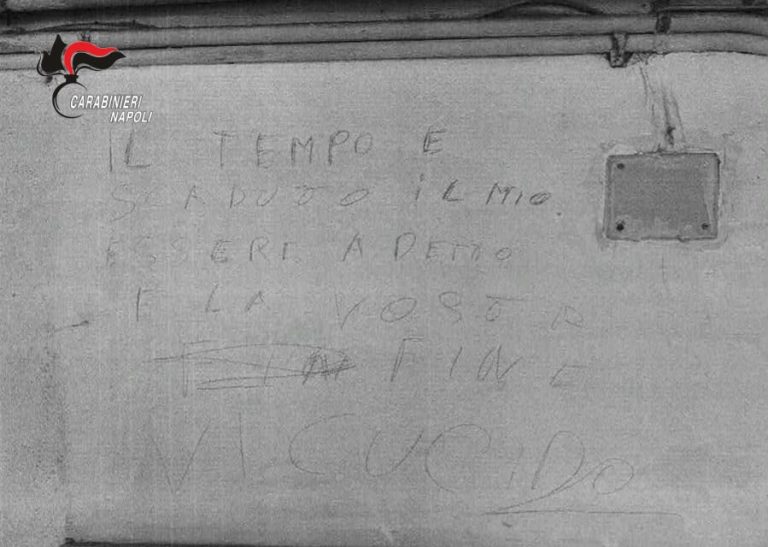 CARABINIERI
NAPOLI
IL TEMPO E
SCADUTO IL MIO
ESSERE A DETTO
E LA VOSTR
FINE
VI CUCIDO